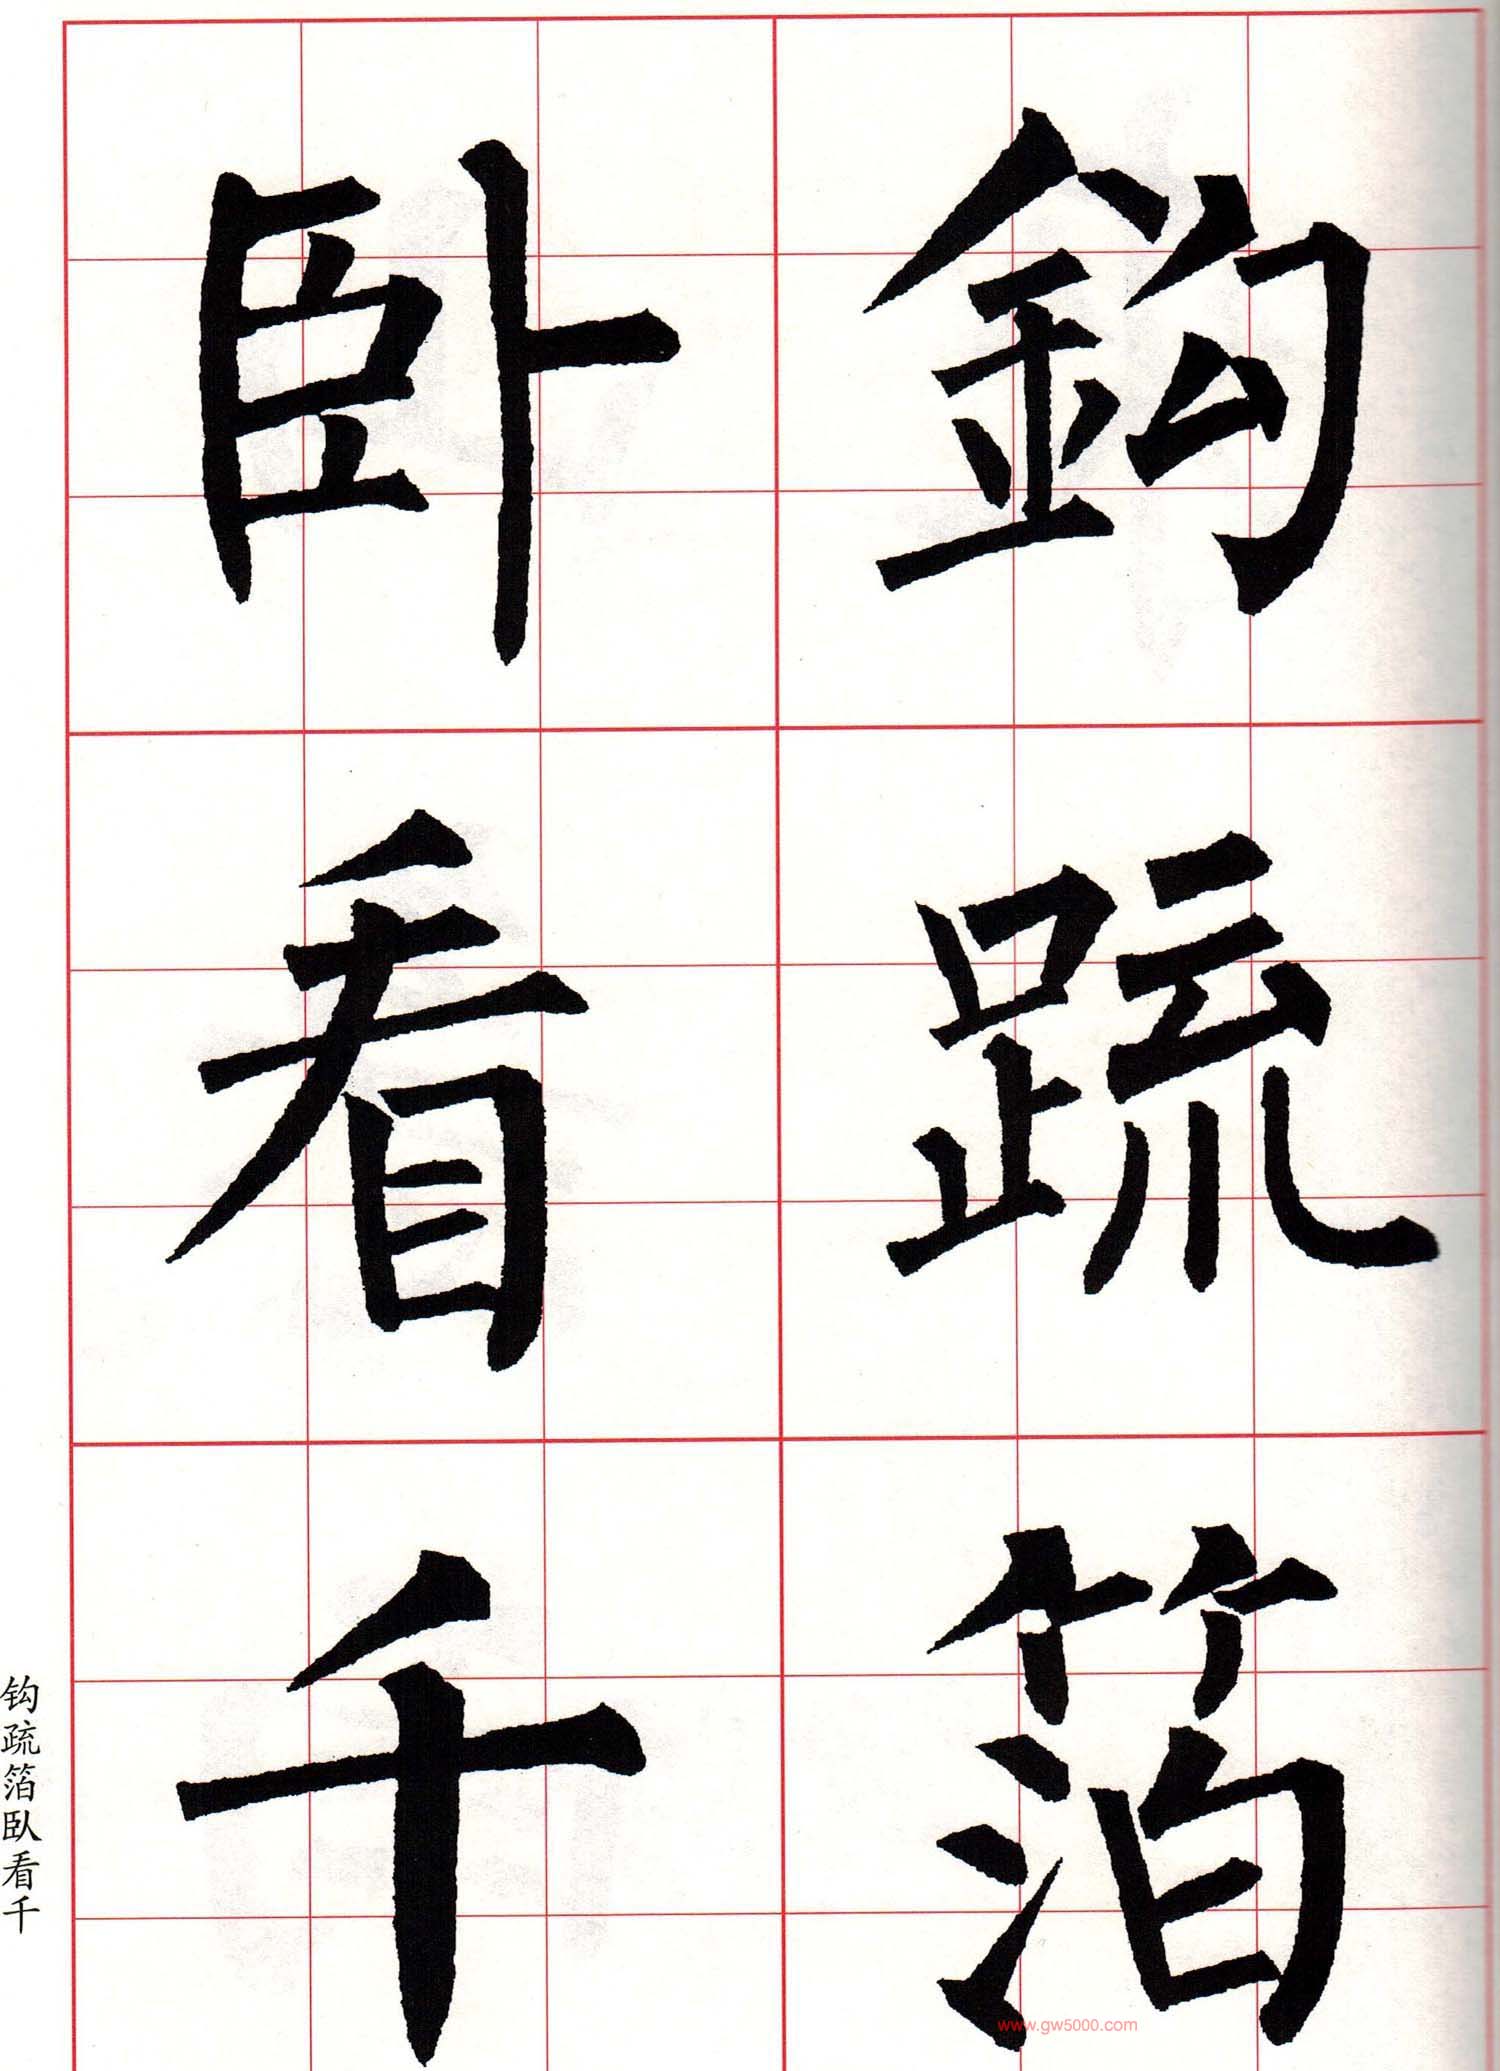 鈎疏箔
卧看千
钩疏箔卧看千
www.gw5000.com